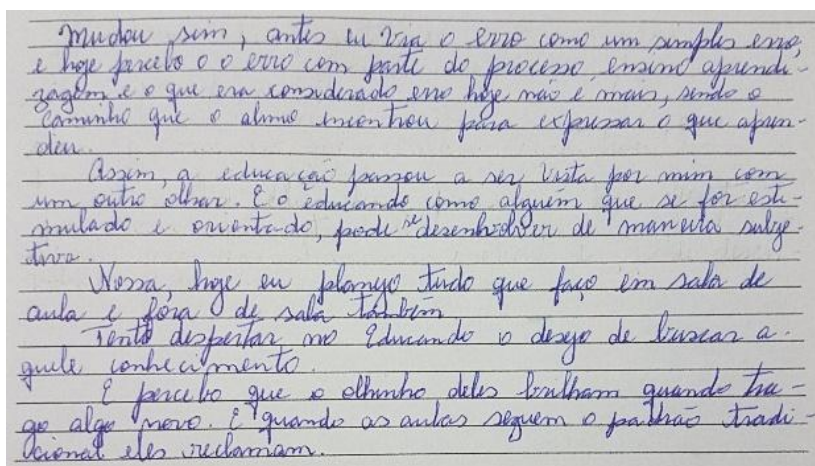 Mudou sim, antes eu via o erro como um simples erro,
e hoje percebo o o erro com parte do processo ensino aprendi-
zagem e o que era considerado erro hoje não é mais, sendo o
caminho que o aluno encontrou para expressar o que apren-
deu.
Assim, a educação passou a ser vista por mim com
um outro olhar. E o educando como alguém que se for esti-
mulado e orientado, pode se desenhvolver de maneira subje-
tiva.
Nossa, hoje eu planejo tudo que faço em sala de
aula e fora de sala também
Tento despertar no Educando o desejo de buscar a-
quele conhecimento.
E percebo que o olhinho deles brilham quando tra-
go algo novo. E quando as aulas seguem o padrão tradi-
cional eles reclamam.